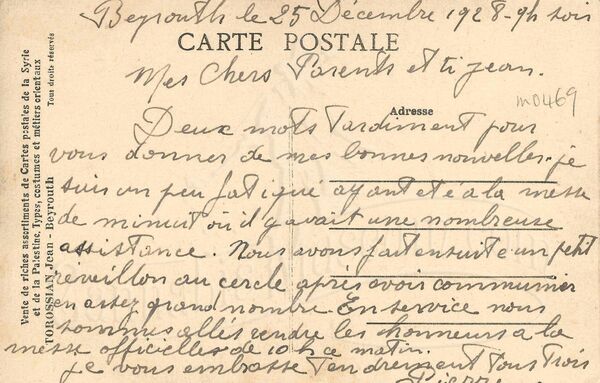 Beyrouth le 25 Décembre 1928-9h soir
CARTE POSTALE
Mes Chers Parents et ti jean.
m0469
Adresse
Deux mots tardiment pour
vous donner de mes bonnes nouvelles. je
suis un peu fatigué ayant eté a la messe
de minuit où il y avait une nombreuse
assistance. Nous avons fait ensuite un petit
réveillon au cercle après avoir communier
en assez grand nombre. En service nous
sommes allés rendre les honneurs a la
messe officielles de 10h ce matin.
je vous embrasse tendrement tous trois
Pierre
Vente de riches assortiments de Cartes postales de la Syrie
et de la Palestine, Types, costumes et métiers orientaux
TOROSSIAN Jean - Beyrouth
Tous droits réservés